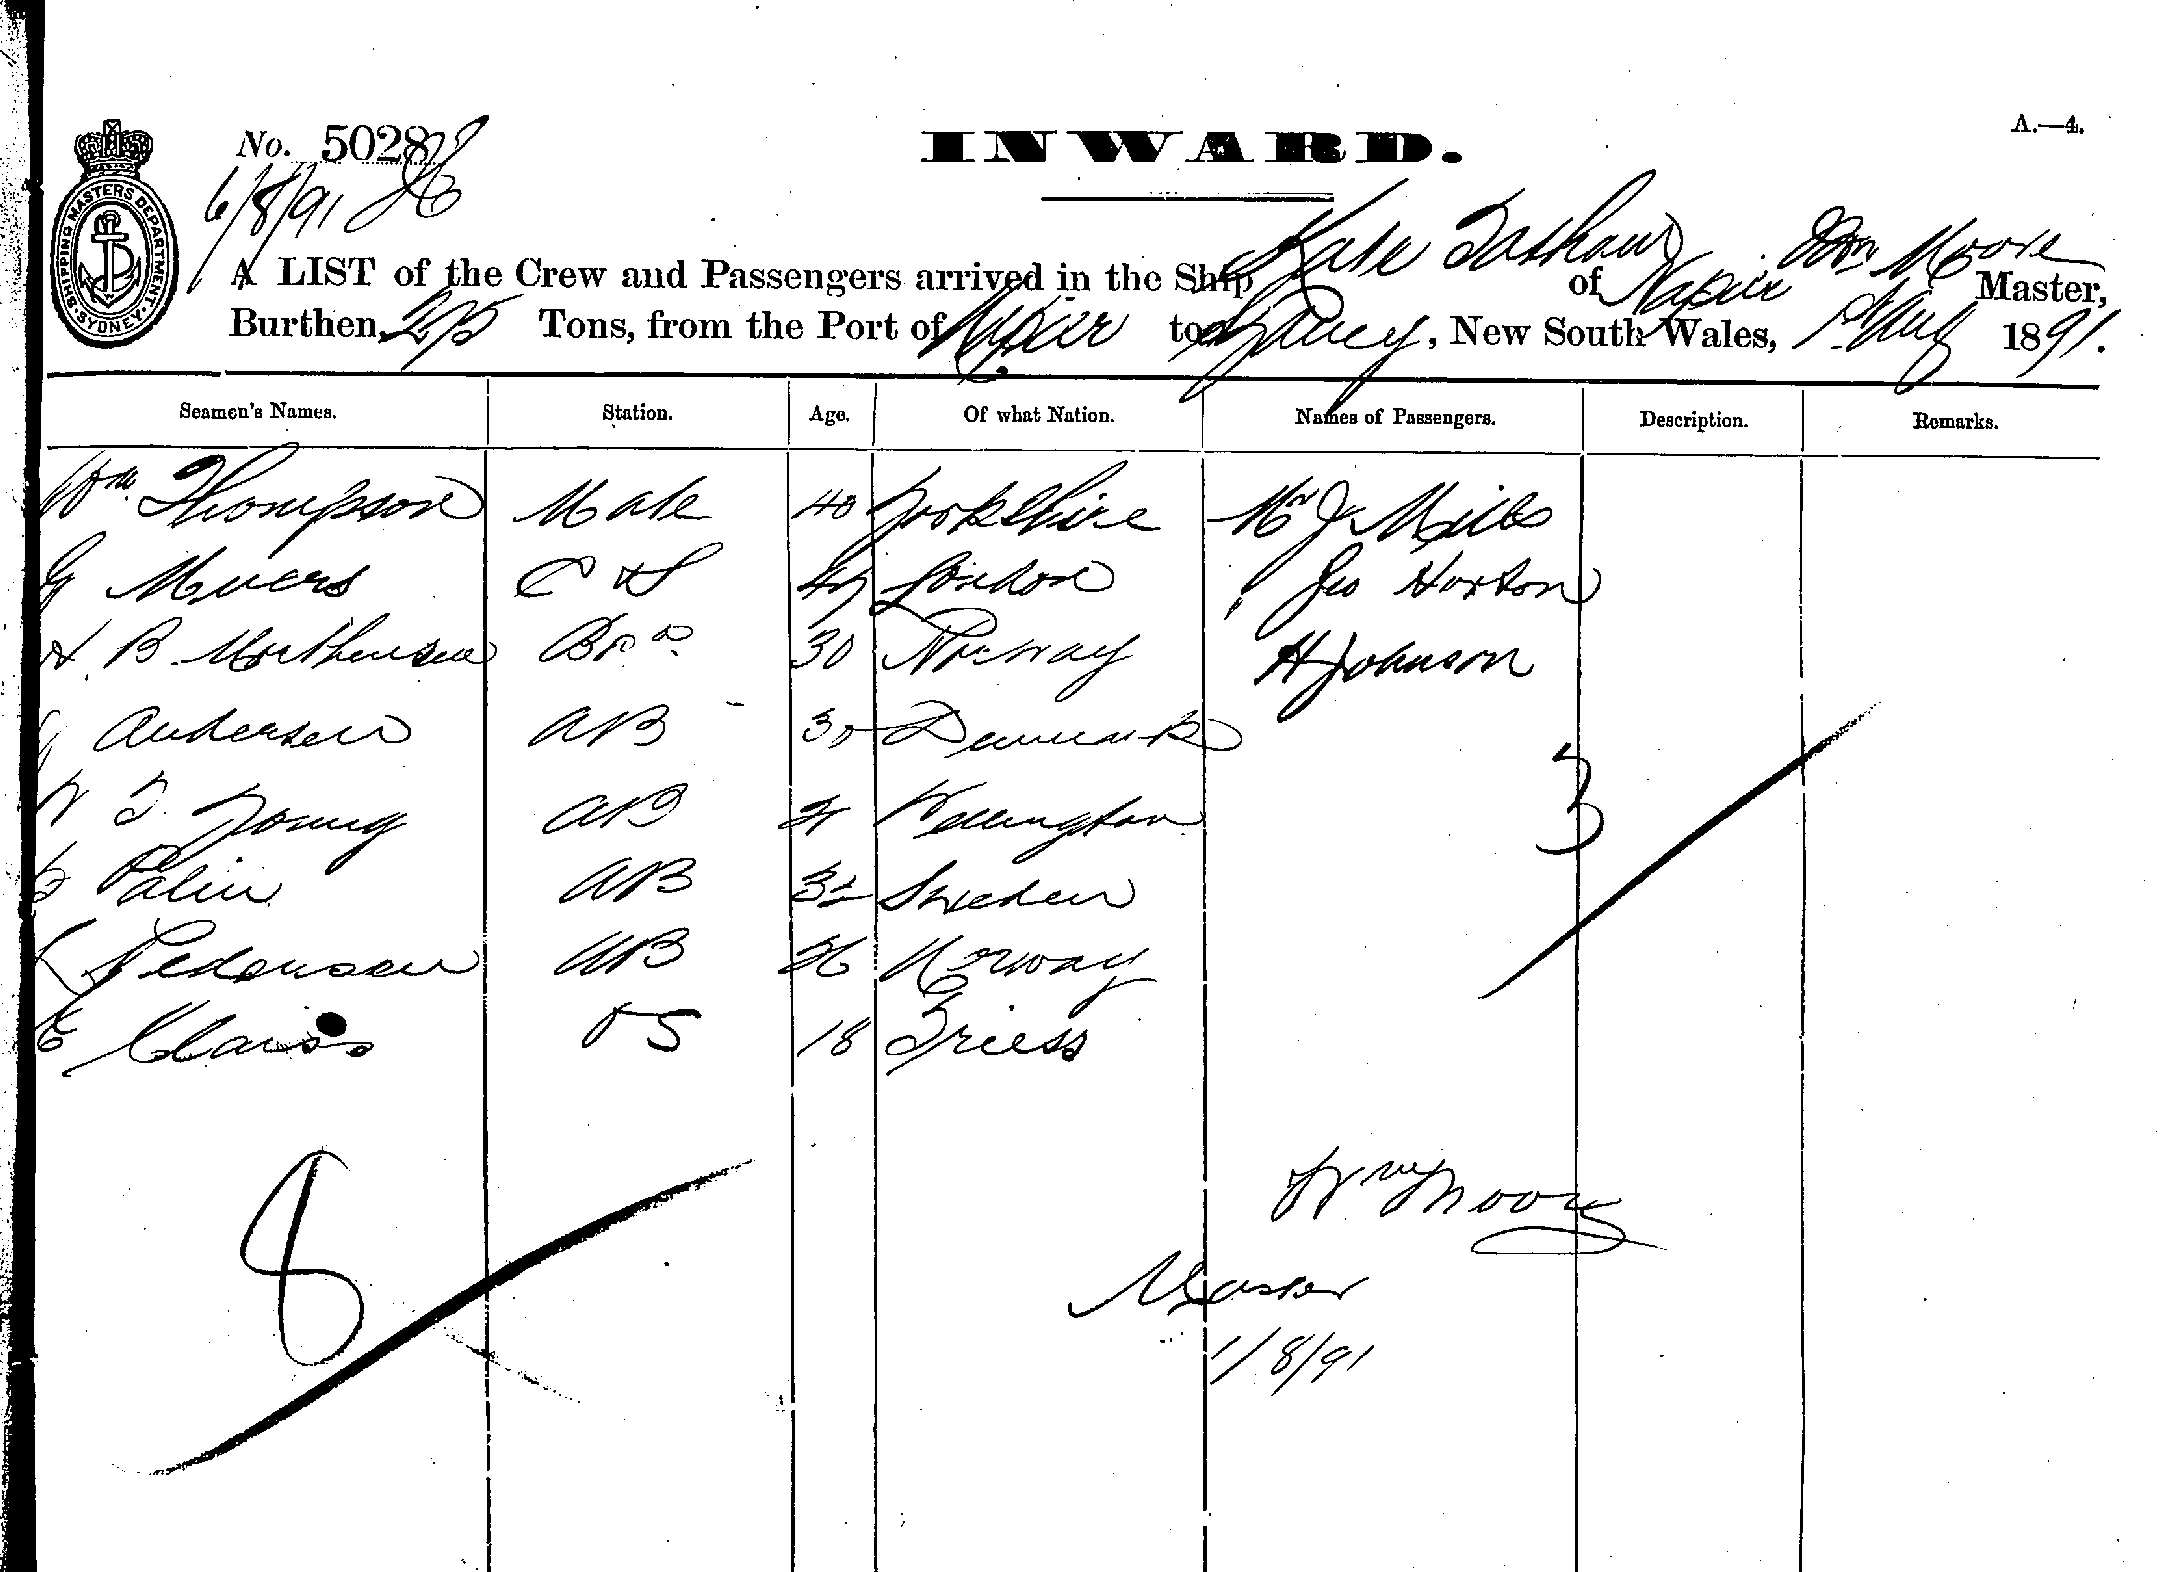 A.—4.
No. 5028
INWARD.
6/8/91
SHIPPING MASTERS DEPARTMENT SYDNEY
A LIST of the Crew and Passengers arrived in the Ship Kate Tatham of Napier Wm Moore Master,
Burthen 275 Tons, from the Port of Napier to Sydney, New South Wales, 1st Aug 1891.
Seamen's Names. Station. Age. Of what Nation. Names of Passengers. Description. Remarks.
Wm Thompson Mate 40 Yorkshire Mr J Mills
G C & S London Geo Horton
H. B. Morthensen 30 Norway H Johnson
Andersen AB 30 Denmark
W T. Young AB Wellington
Palin AB 32 Sweden
Pedersen AB 26 Norway
E OS 18
3
8
Wm Moore
Master
1/8/91